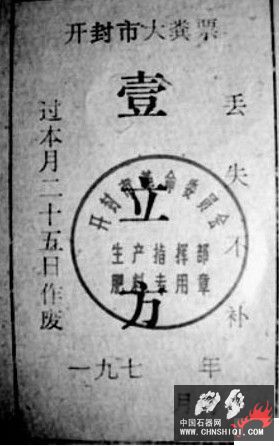 开封市大粪票
壹立方
丢失不补
过本月二十五日作废
开封市革命委员会
生产指挥部
肥料专用章
一九七 年
月
中国石器网
WWW.CHNSHIQI.COM